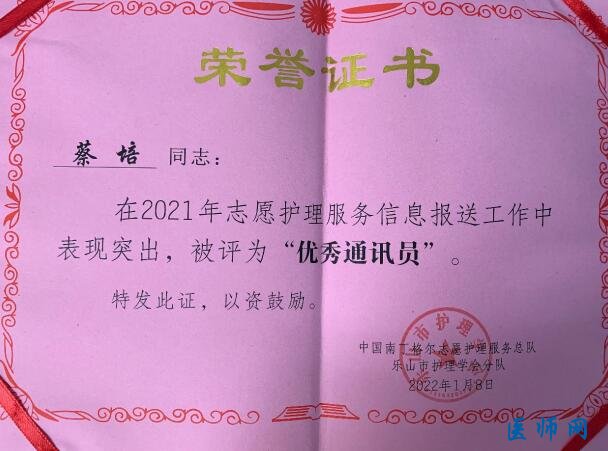 荣誉证书
蔡培 同志：
在2021年志愿护理服务信息报送工作中
表现突出，被评为“优秀通讯员”。
特发此证，以资鼓励。
中国南丁格尔志愿护理服务总队
乐山市护理学会分队
2022年1月8日
医师网